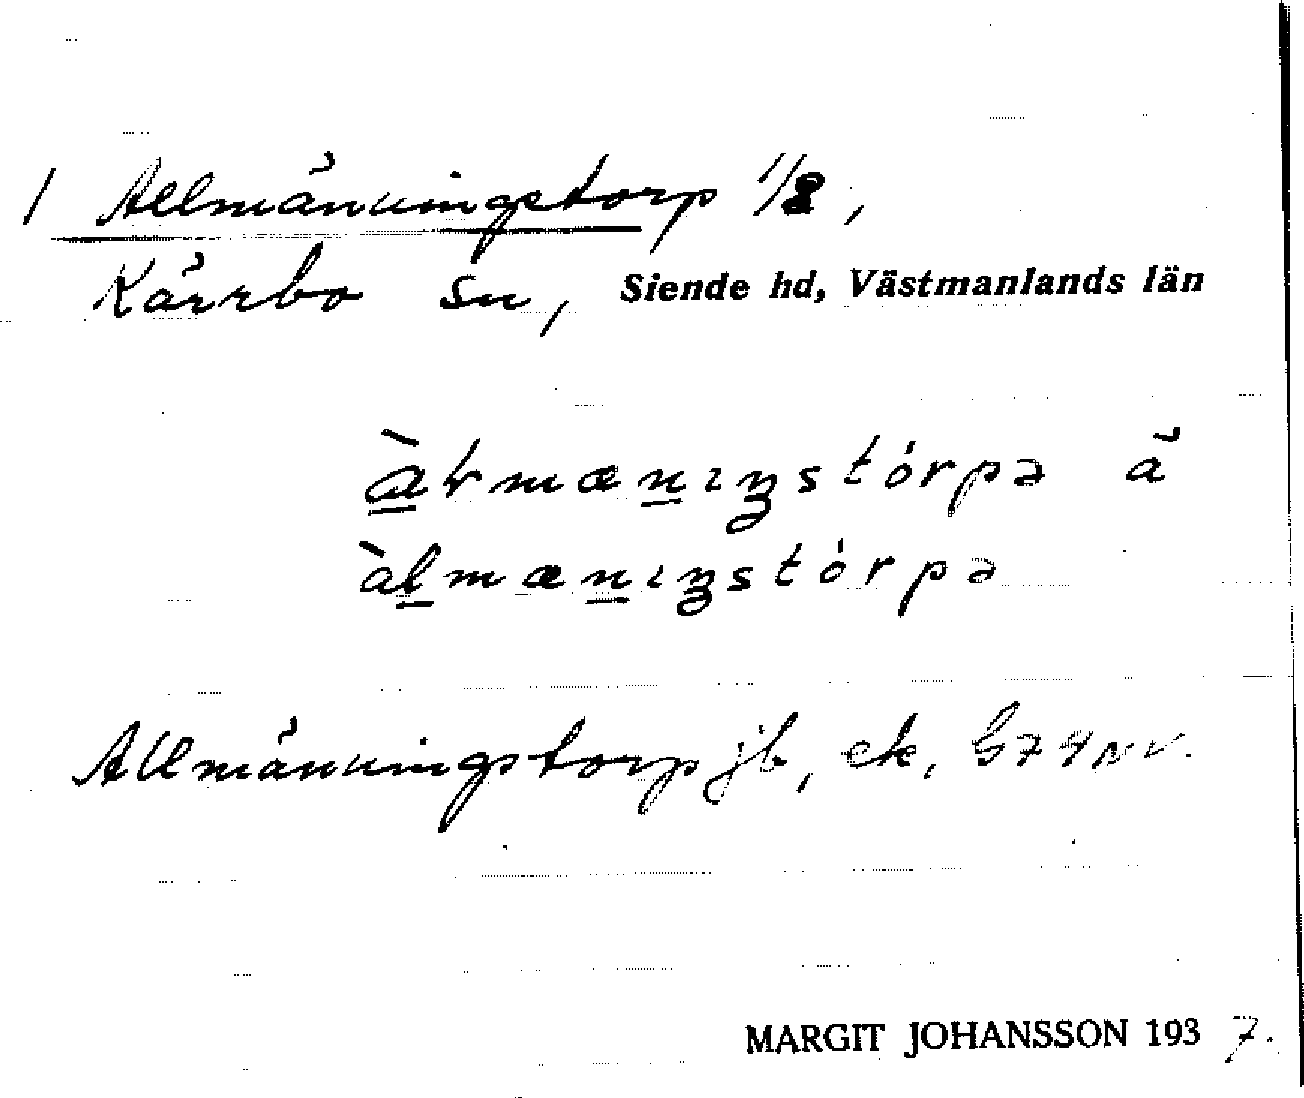 / Allmänningstorp 1/8,
Kärrbo sn, Siende hd, Västmanlands län
àƚmænıŋstórpə ä
àlmænıŋstórpə
Allmänningstorp jb, ek, G74NV.
MARGIT JOHANSSON 1937.